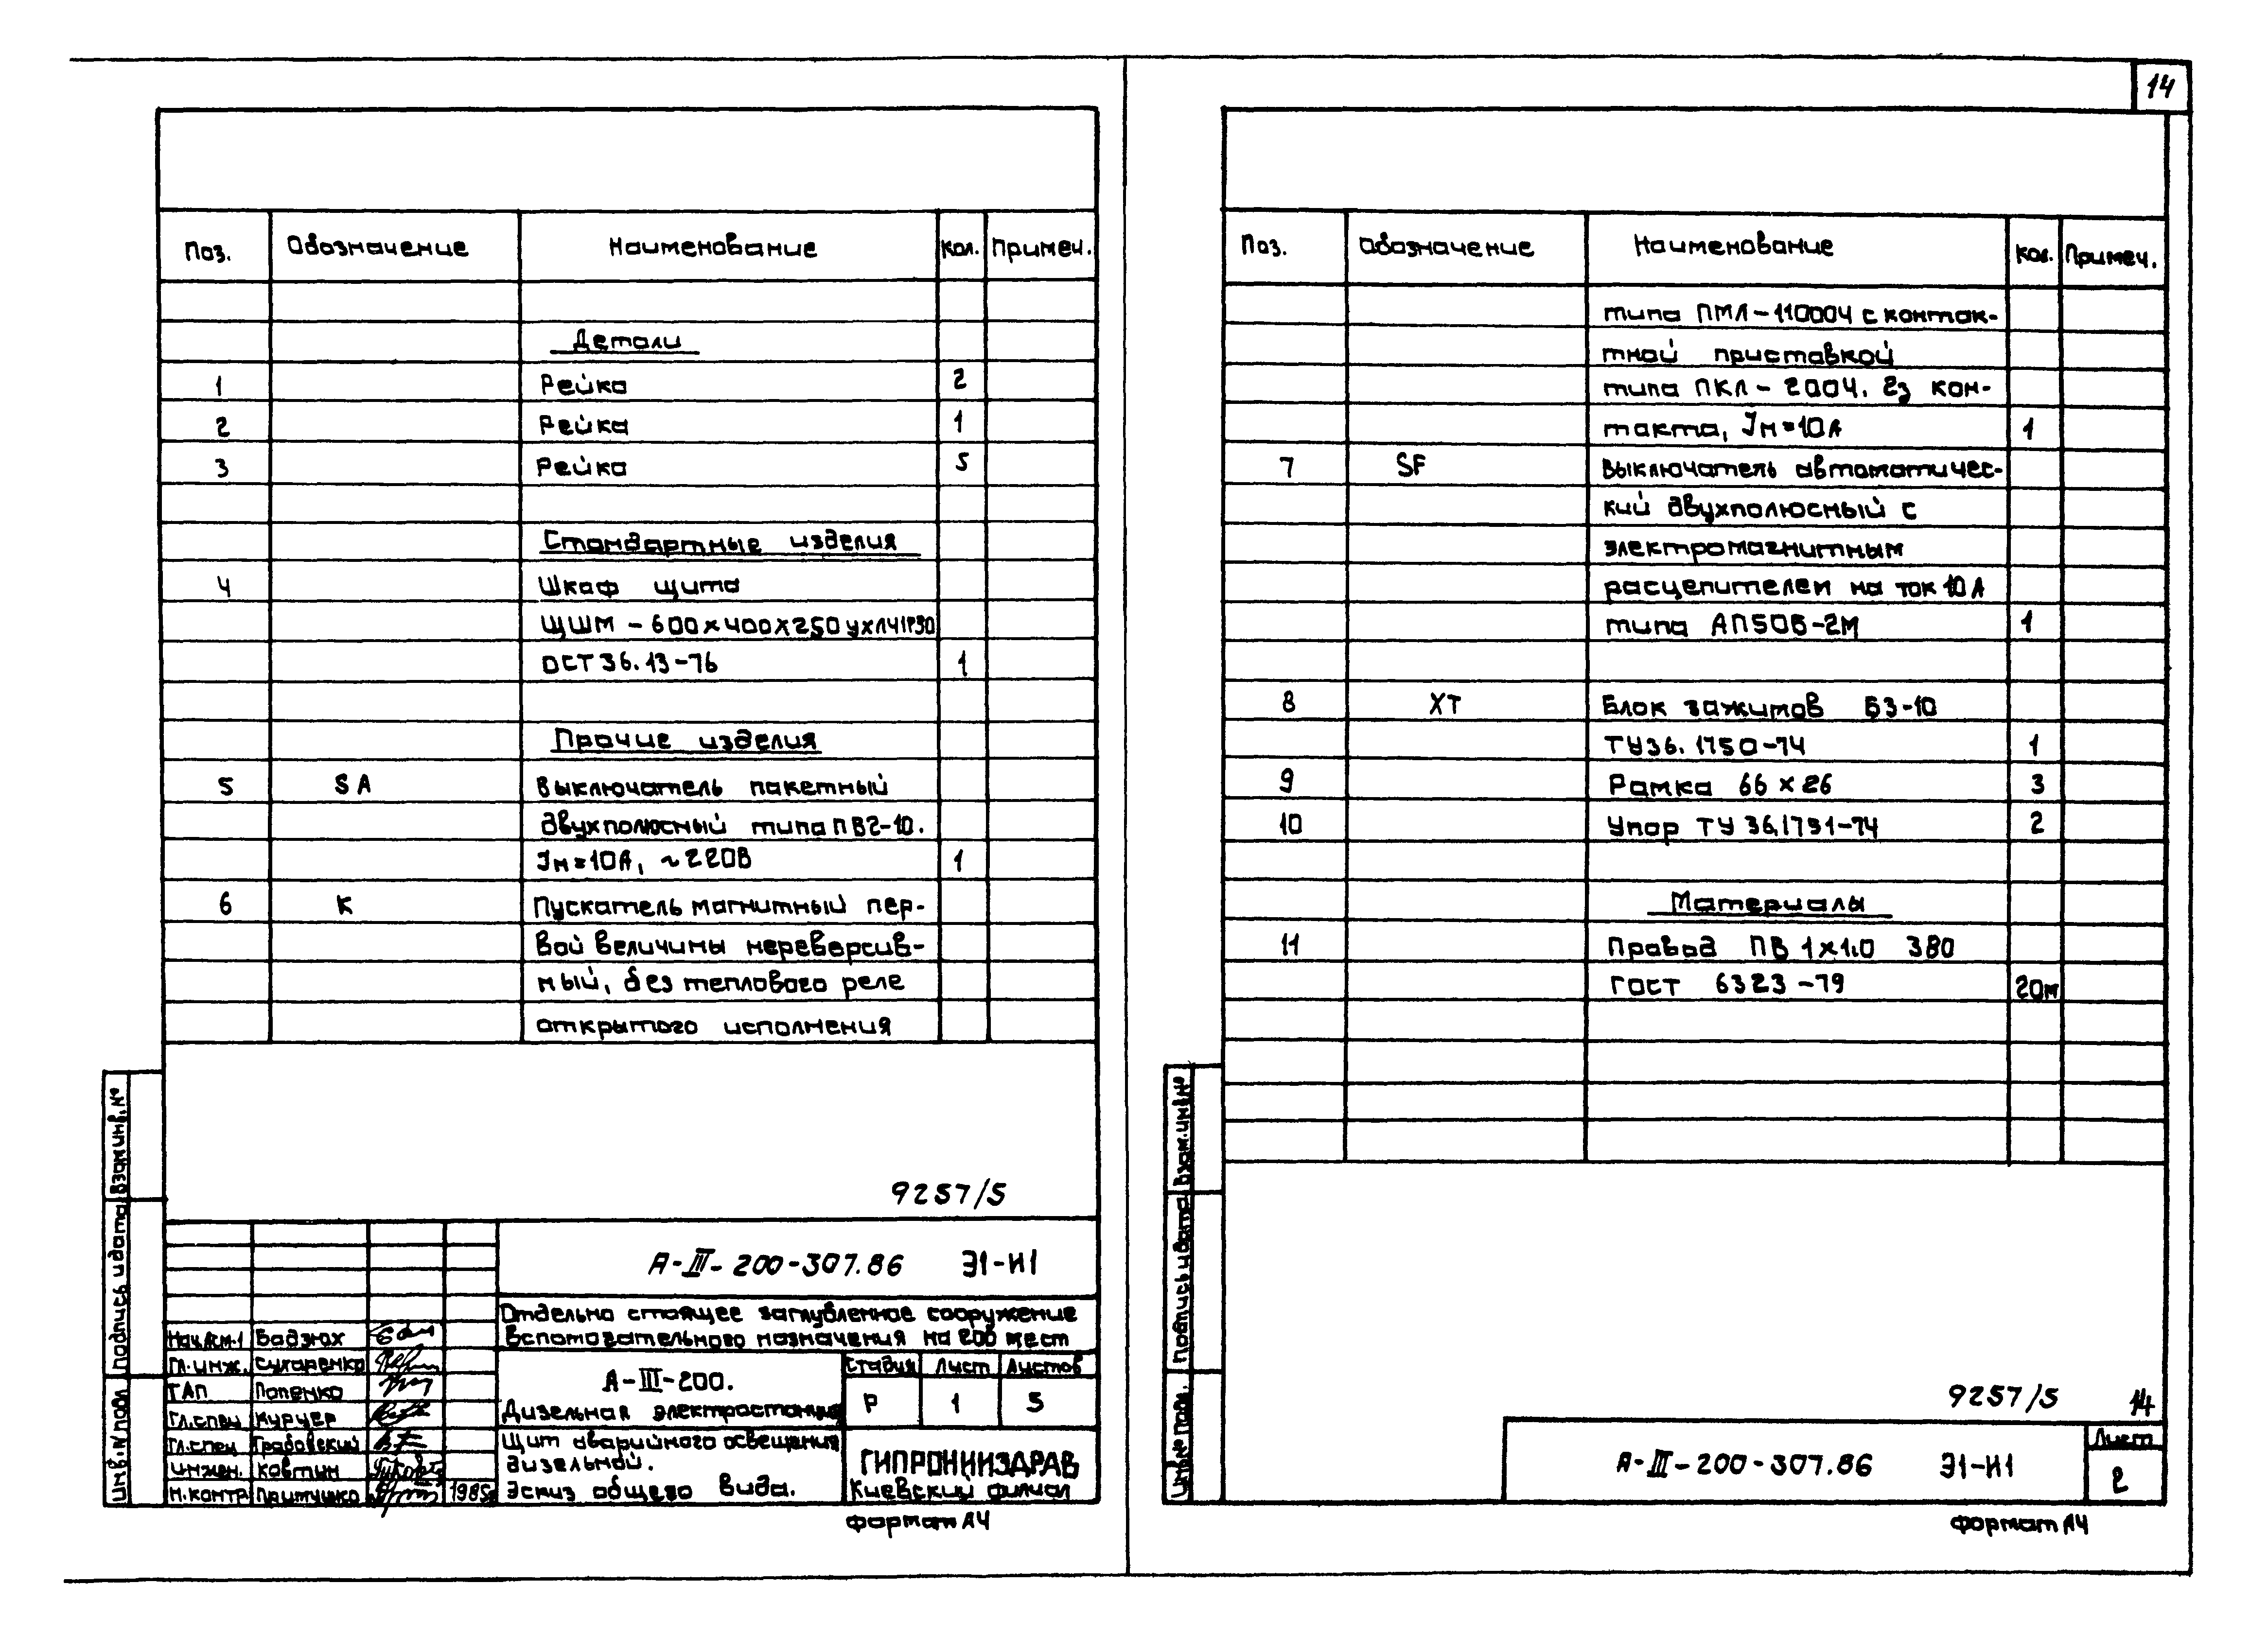 14
Поз. Обозначение Наименование Кол. Примеч.
Детали
1 Рейка 2
2 Рейка 1
3 Рейка 5
Стандартные изделия
4 Шкаф щита
ЩШМ - 600х400х250 УХЛ4 IP30
ОСТ 36.13-76 1
Прочие изделия
5 SA Выключатель пакетный
двухполюсный типа ПВ2-10.
Iн=10А, ~220В 1
6 К Пускатель магнитный пер-
вой величины нереверсив-
ный, без теплового реле
открытого исполнения
9257/5
А-III-200-307.86 Э1-И1
Отдельно стоящее заглубленное сооружение
вспомогательного назначения на 200 мест
Нач.АСМ-1 Бадзюх
Гл.инж. Сухаренко
ГАП Попенко
Гл.спец Курчер
Гл.спец Грабовский
Инжен. Ковтын
Н.контр Притучко 1985
А-III-200.
Дизельная электростанция
Стадия Лист Листов
Р 1 5
Щит аварийного освещения
дизельной.
Эскиз общего вида.
ГИПРОНИИЗДРАВ
Киевский филиал
Формат А4
Инв.N подл. Подпись и дата Взам.инв.№
Поз. Обозначение Наименование Кол. Примеч.
типа ПМЛ-110004 с контак-
тной приставкой
типа ПКЛ-2004. 2з кон-
такта, Iн=10А 1
7 SF Выключатель автоматичес-
кий двухполюсный с
электромагнитным
расцепителем на ток 10А
типа АП50Б-2М 1
8 ХТ Блок зажимов БЗ-10
ТУ36.1750-74 1
9 Рамка 66х26 3
10 Упор ТУ 36.1751-74 2
Материалы
11 Провод ПВ 1х1.0 380
ГОСТ 6323-79 20м
9257/5 14
А-III-200-307.86 Э1-И1
Лист
2
Формат А4
Инв.№ подл. Подпись и дата Взам.инв.№